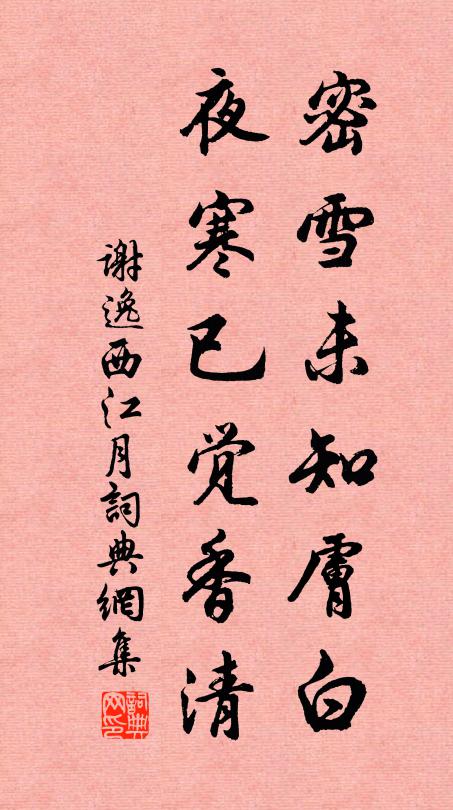 密雪未知膚白
夜寒已覚香清
謝逸西江月詞典網集
詞典网印